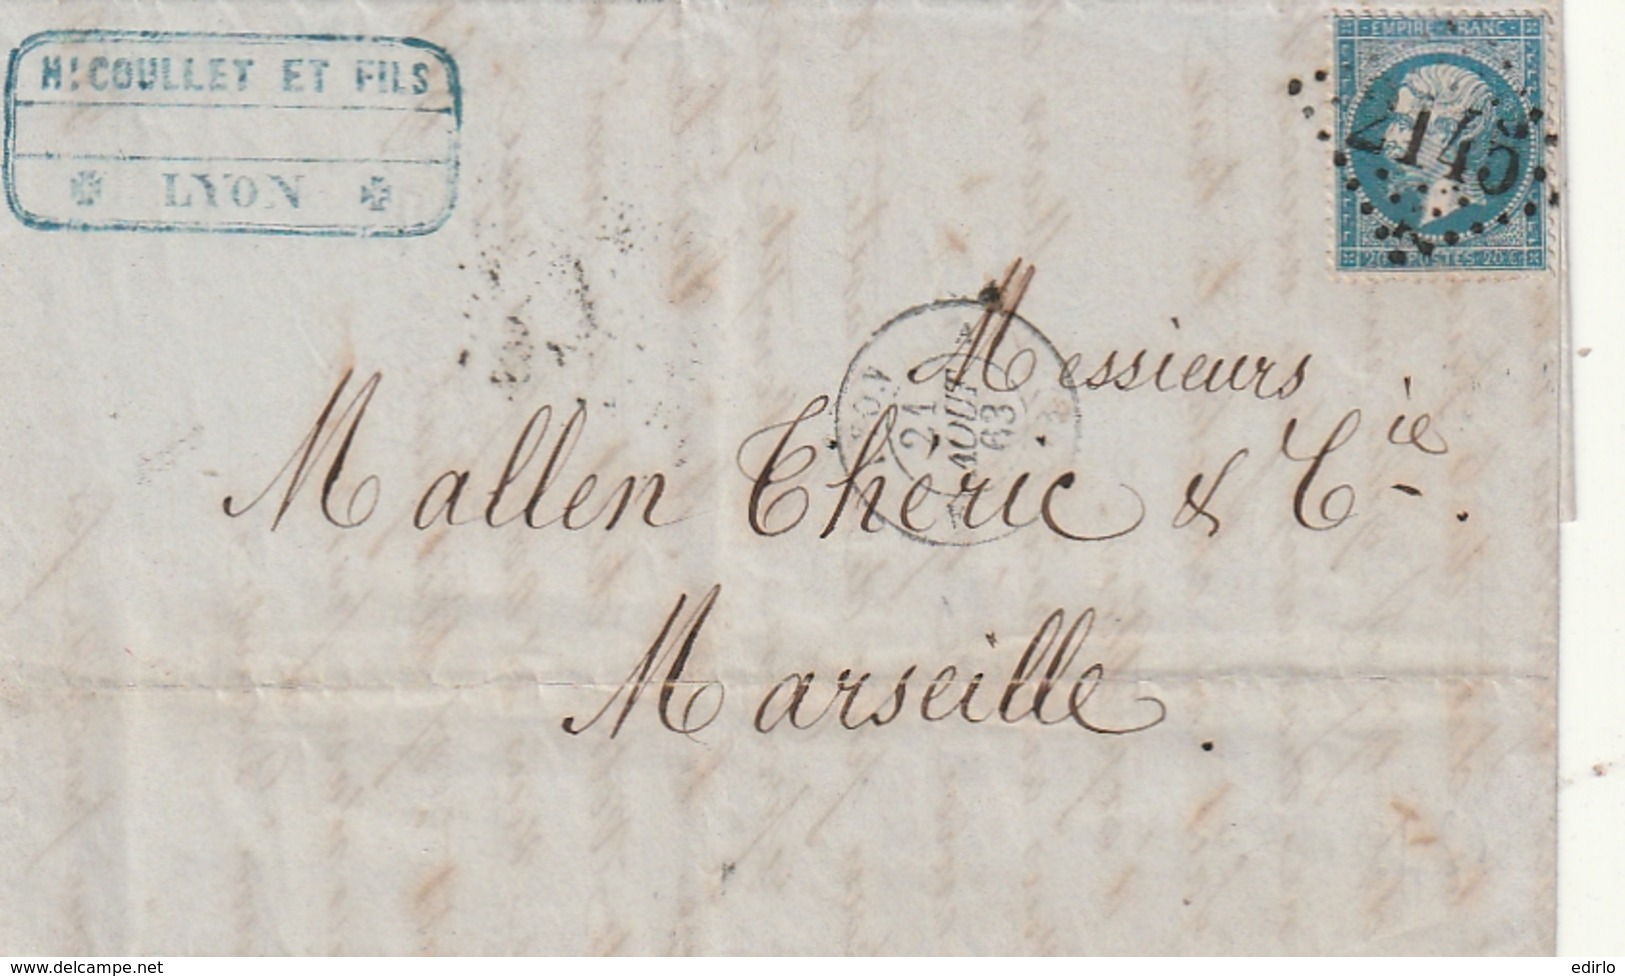 Hi COULLET ET FILS
LYON
EMPIRE FRANC
2145
20 POSTES 20 C
21
AOUT
63
Messieurs
Mallen Theric & Cie.
Marseille.
www.delcampe.net
edirlo